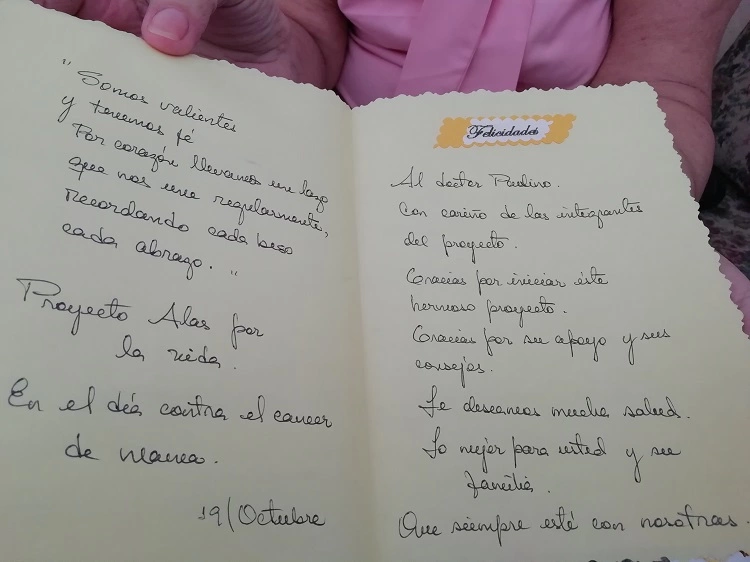 "Somos valientes
y tenemos fé
Por corazón llevamos un lazo
que nos une regularmente,
recordando cada beso
cada abrazo."
Proyecto Alas por
la vida.
En el día contra el cancer
de mama.
19/Octubre
Felicidades
Al doctor Paulino.
Con cariño de las integrantes
del proyecto.
Gracias por iniciar éste
hermoso proyecto.
Gracias por su apoyo y sus
consejos.
Le deseamos mucha salud.
Lo mejor para usted y su
familia.
Que siempre esté con nosotras.